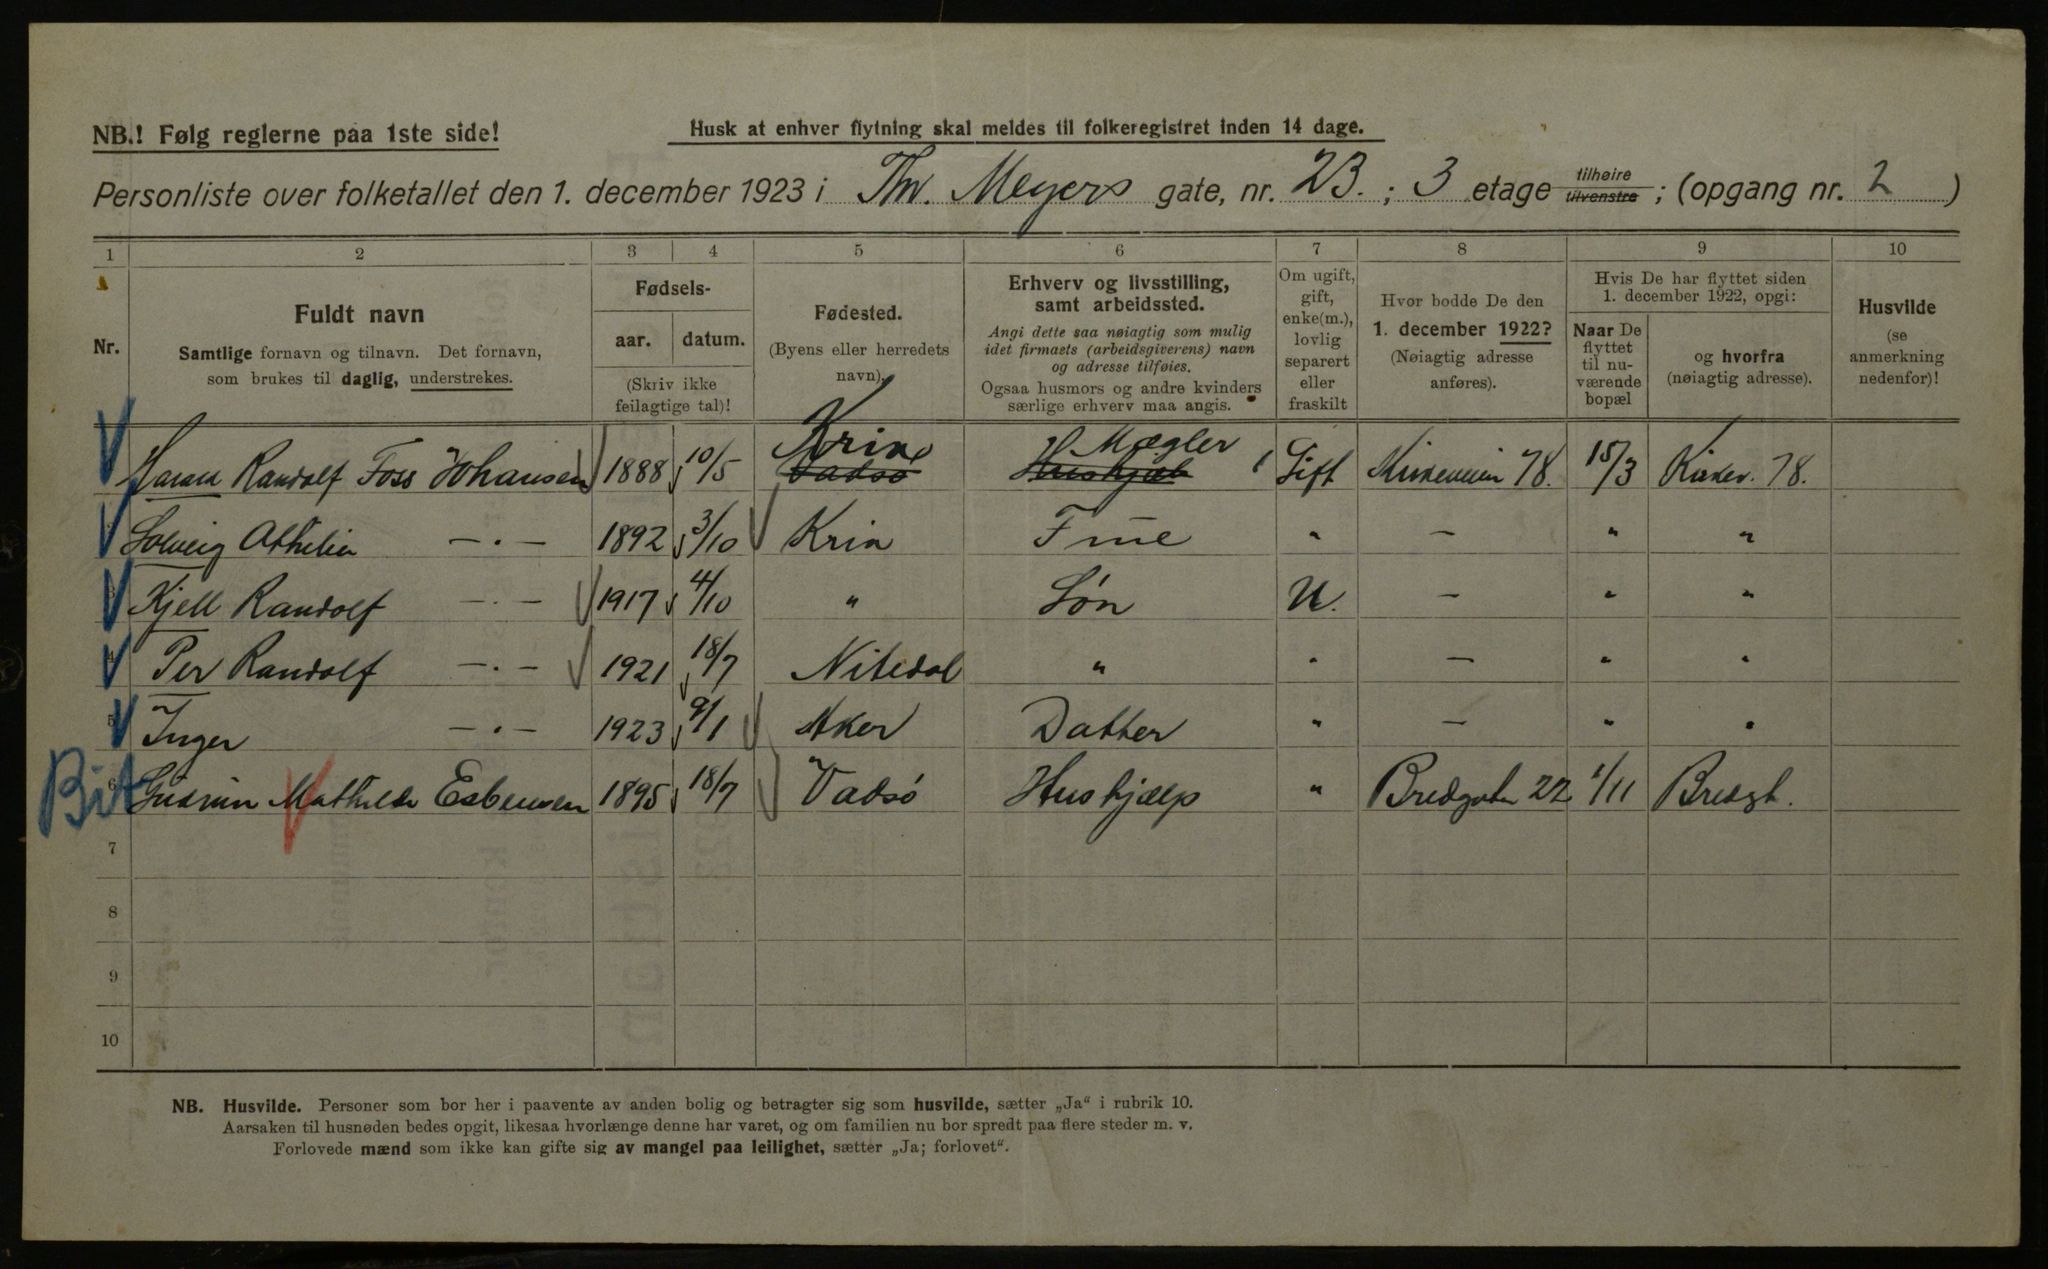 NB.! Følg reglerne paa 1ste side!
Husk at enhver flytning skal meldes til folkeregistret inden 14 dage.
Personliste over folketallet den 1. december 1923 i Thv. Meyers gate, nr. 23. ; 3 etage tilhøire tilvenstre ; (opgang nr. 2 )
1 2 3 4 5 6 7 8 9 10
Nr.
Fuldt navn
Samtlige fornavn og tilnavn. Det fornavn,
som brukes til daglig, understrekes.
Fødsels-
aar. datum.
(Skriv ikke
feilagtige tal)!
Fødested.
(Byens eller herredets
navn).
Erhverv og livsstilling,
samt arbeidssted.
Angi dette saa nøiagtig som mulig
idet firmaets (arbeidsgiverens) navn
og adresse tilføies.
Ogsaa husmors og andre kvinders
særlige erhverv maa angis.
Om ugift,
gift,
enke(m.),
lovlig
separert
eller
fraskilt
Hvor bodde De den
1. december 1922?
(Nøiagtig adresse
anføres).
Hvis De har flyttet siden
1. december 1922, opgi:
Naar De
flyttet
til nu-
værende
bopæl
og hvorfra
(nøiagtig adresse).
Husvilde
(se
anmerkning
nedenfor)!
Randolf Foss Johansen 1888 10/5 Kria Vadsø Mægler Gift Kirkeveien 78. 15/3 Kirkev. 78.
Solveig Athilia —·— 1892 3/10 Kria Frue " — " "
3 Kjell Randolf —·— 1917 4/10 " Søn U. — " "
4 Per Randolf —·— 1921 18/7 Nitedal " " — " "
5 Inger —·— 1923 9/1 Aker Datter " — " "
Bit 6 Gudrun Mathilde Esbensen 1895 18/7 Vadsø Hushjælp " Bredgaten 22 1/11 Bredgt.
7
8
9
10
NB. Husvilde. Personer som bor her i paavente av anden bolig og betragter sig som husvilde, sætter „Ja“ i rubrik 10.
Aarsaken til husnøden bedes opgit, likesaa hvorlænge denne har varet, og om familien nu bor spredt paa flere steder m. v.
Forlovede mænd som ikke kan gifte sig av mangel paa leilighet, sætter „Ja; forlovet“.